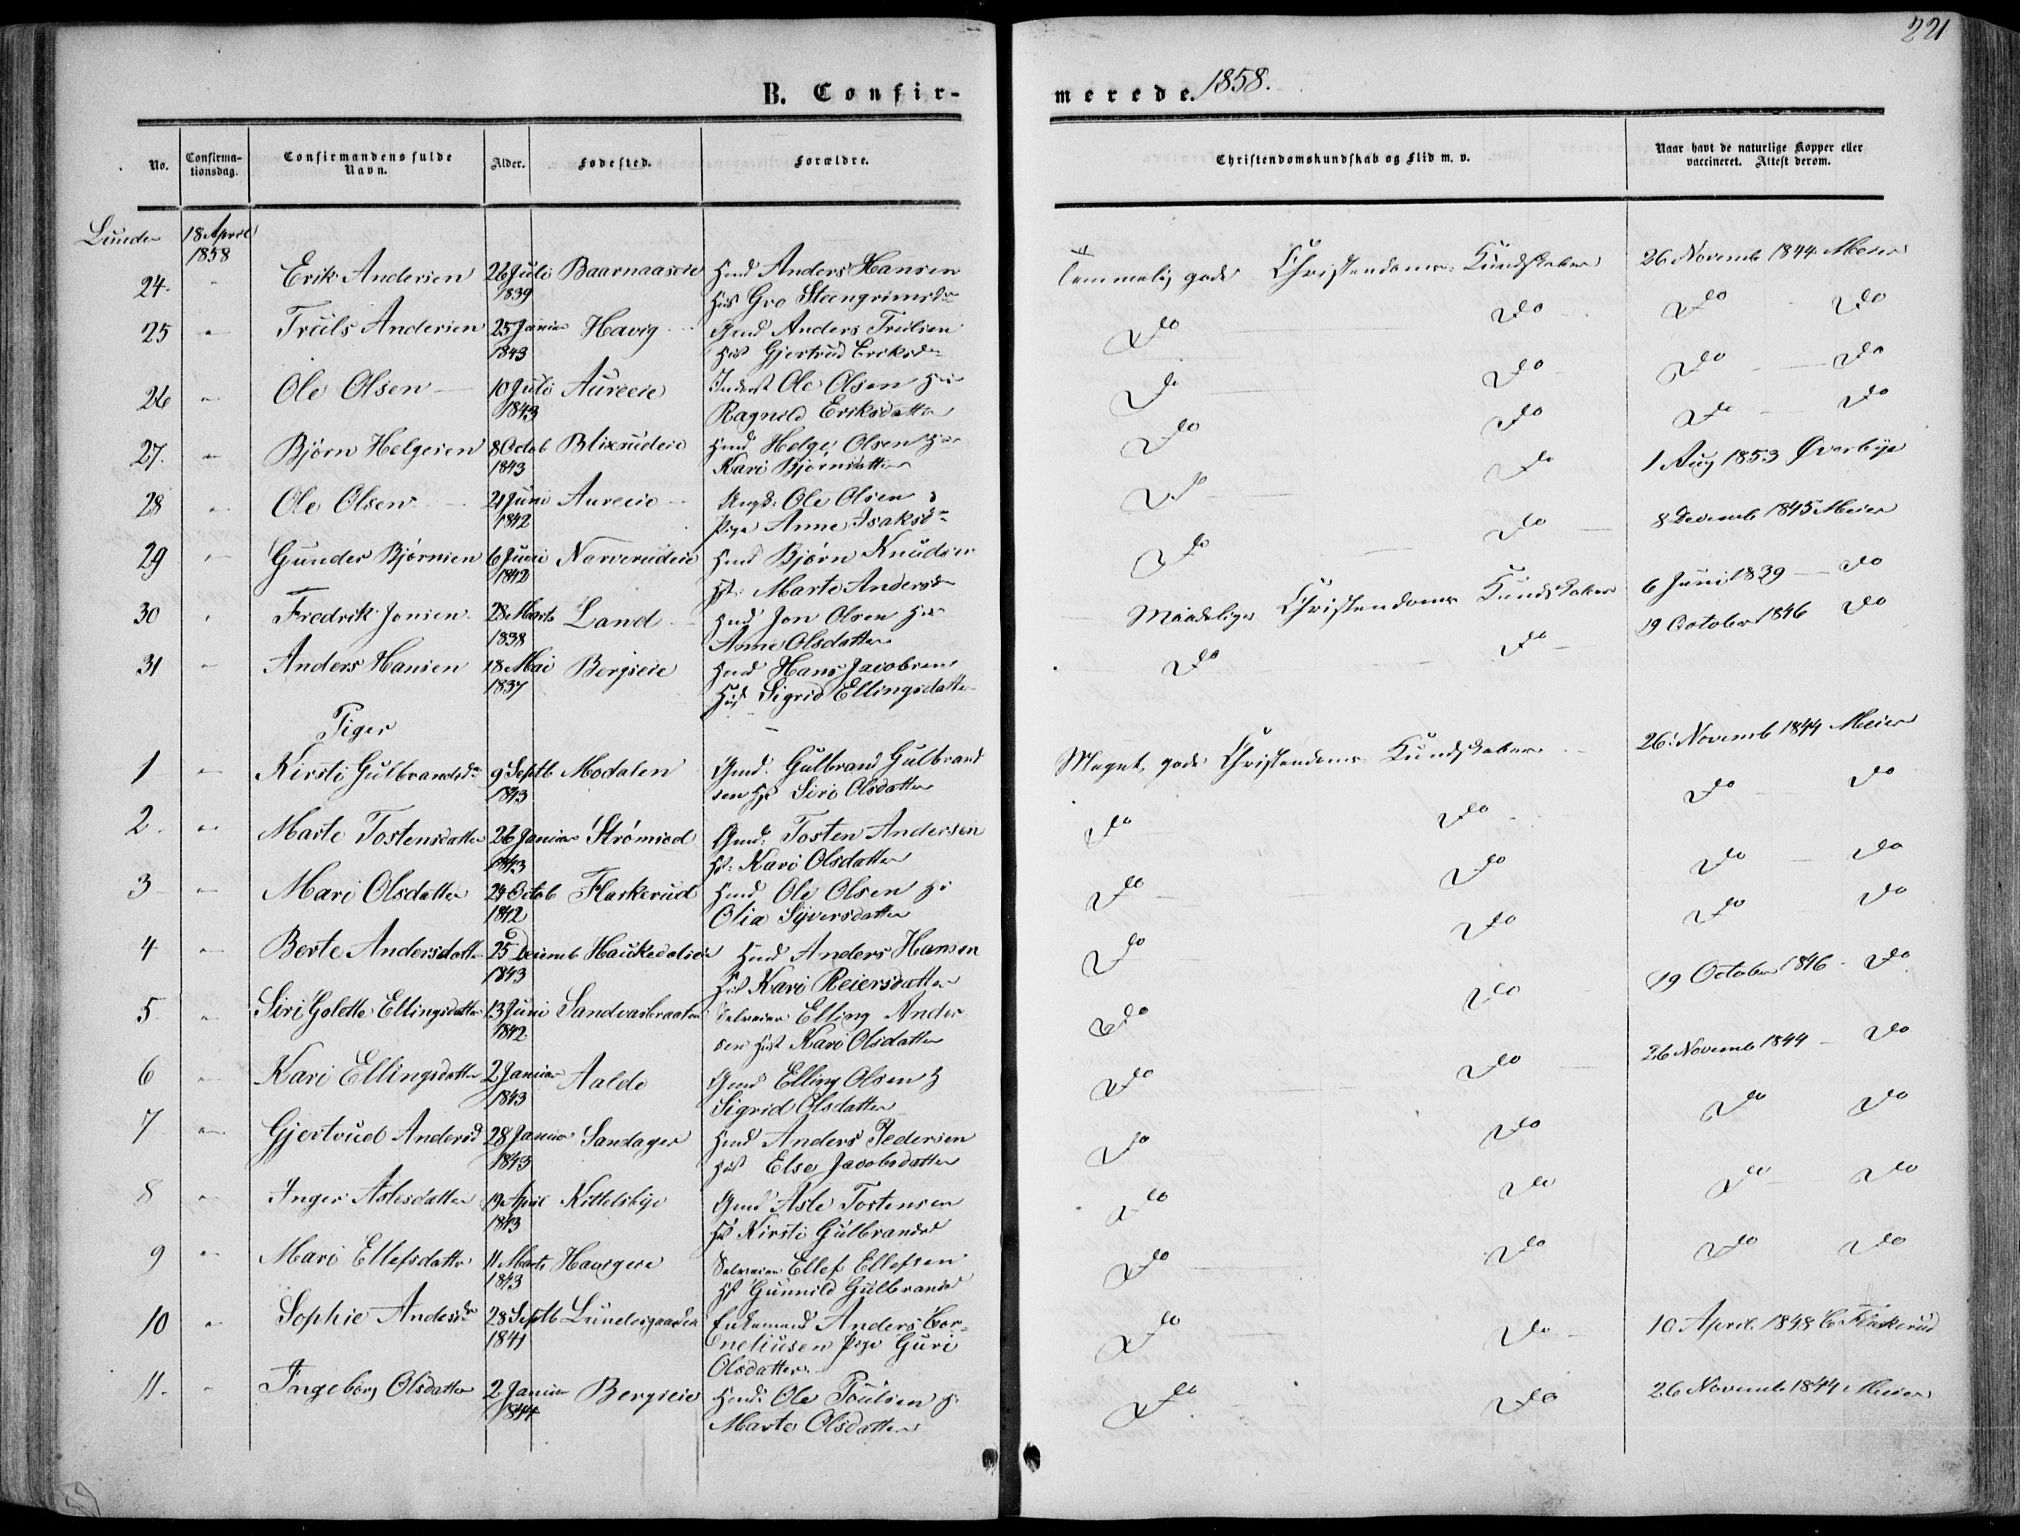 221
B. Confir-
merede. 1858.
No.
Confirma-
tionsdag.
Confirmandens fulde
Navn.
Alder.
Fødested.
Forældre.
Christendomskundskab og Flid m. v.
Naar havt de naturlige Kopper eller
vaccineret. Attest derom.
Lunder 18 April
1858
24. " Erik Andersen 26 Juli Baarnaaseie Hmd Anders Hansen Temmelig gode Christendoms Kundskaber 26 Novemb 1844 Meier
1839 Hus Gro Steengrimsdr
25 " Truls Andersen 25 Januar Havig Gmd Anders Trulsen Do Do Do Do
1843 Hus Gjertrud Eriksdr
26 " Ole Olsen 10 Juli Aureeie Inderst Ole Olsen H Do Do Do Do
1843 Ragnild Eriksdatter
27. " Bjørn Helgesen 8 Octob Blixrudeie Hmd Helge Olsen H Do Do Do Do
1843 Kari Bjørnsdatter
28 " Ole Olsen 21 Juni Aureeie Ungk: Ole Olsen Do Do 1 Aug 1853 Øverbye
1842 Pige Anne Isaksdr
29 " Gunder Bjørnsen 6 Juni Norverudeie Hmd Bjørn Knudsen Do Do 8 Decemb 1845 Meier
1842 H: Marte Andersdr
30 " Fredrik Jonsen 28 Marts Land Hmd Jon Olsen H Maadelige Christendoms Kundskaber 6 Juni 1839 Do
1838 Anne Olsdatter
31 " Anders Hansen 18 Mai Bergseie Hmd Hans Jacobsen Do Do 19 October 1846 Do
1837 Hus Sigrid Ellingsdatter
Piger
1 " Kirsti Gulbrandsdr 9 Septb Modalen Gmd. Gulbrand Gulbrand Meget gode Christendoms Kundskaber 26 Novemb 1844 Meier
1843 sen H Siri Olsdatter
2 " Marte Tostensdatter 26 Januar Strømsod Gmd: Tosten Andersen Do Do Do Do
1843 H: Kari Olsdatter
3 " Mari Olsdatter 24 Octob Flaskerud Hmd Ole Olsen H Do Do Do Do
1842 Olia Syversdatter
4 " Berte Andersdatter 25 Decemb Haukedalseie Hmd Anders Hansen Do Do Do Do
1843 Hus Kari Reiersdatter
5 " Siri Golette Ellingsdatter 13 Juni Sandvasbraaten Selveier Elling Ander Do Do 19 October 1846 Do
1842 sen Hust Kari Olsdatter
6 " Kari Ellingsdatter 2 Januar Aalde Gmd Elling Olsen H Do Do 26 Novemb 1844 Do
1843 Sigrid Olsdatter
7 " Gjertrud Andersd 28 Januar Sandager Hmd Anders Pedersen Do Do Do Do
1843 Hus Else Jacobsdatter
8 " Inger Aslesdatter 19 April Kittelsbye Gmd Asle Tostensen Do Do Do Do
1843 Hus Kirsti Gulbrandsd
9 " Mari Ellefsdatter 11 Marts Havigeie Selveier Ellef Ellefsen Do Do Do Do
1843 H Gunnild Gulbrandsd
10 " Sophie Andersdr 28 Septb Lundesgaarden Enkemand Anders Cor- Do Do 10 April 1848 C Flaskerud
1841 neliusen Pige Guri
Olsdatter
11. " Ingeborg Olsdatter 2 Januar Bergseie Hmd: Ole Poulsen H: Do Do 26 Novemb 1844 Meier
1844 Marte Olsdatter